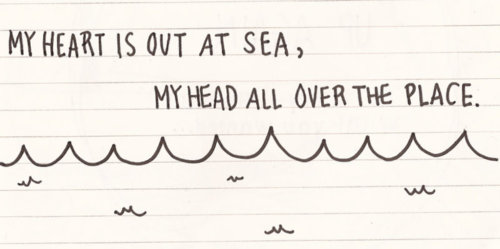 MY HEART IS OUT AT SEA,
MY HEAD ALL OVER THE PLACE.